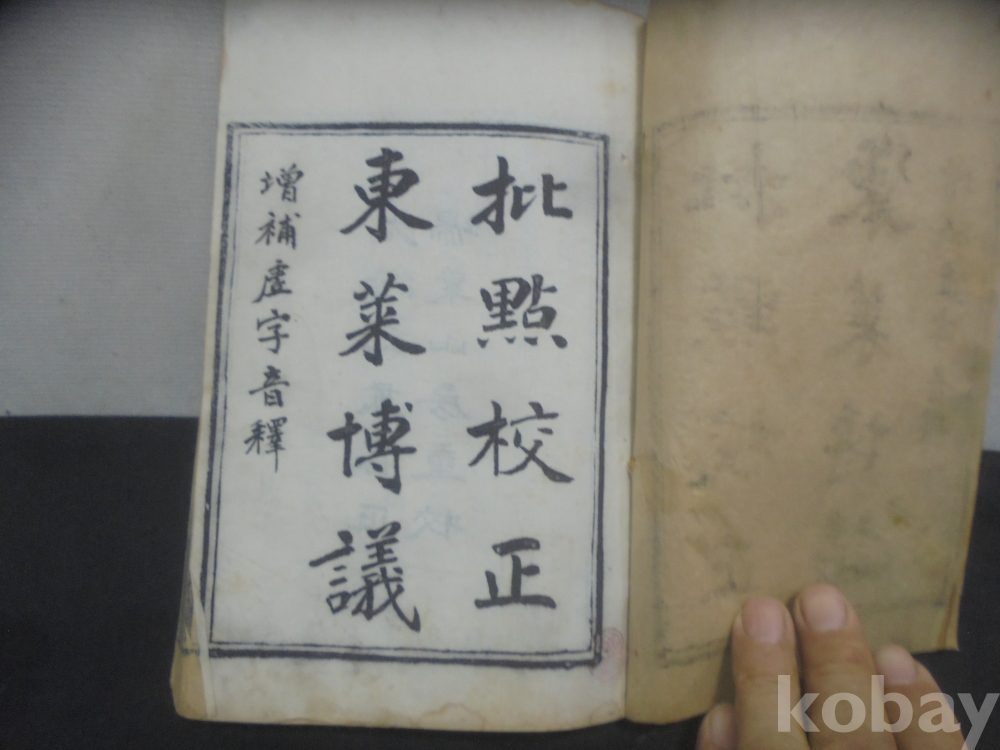 批點校正
東萊博議
增補虛字音釋
kobay